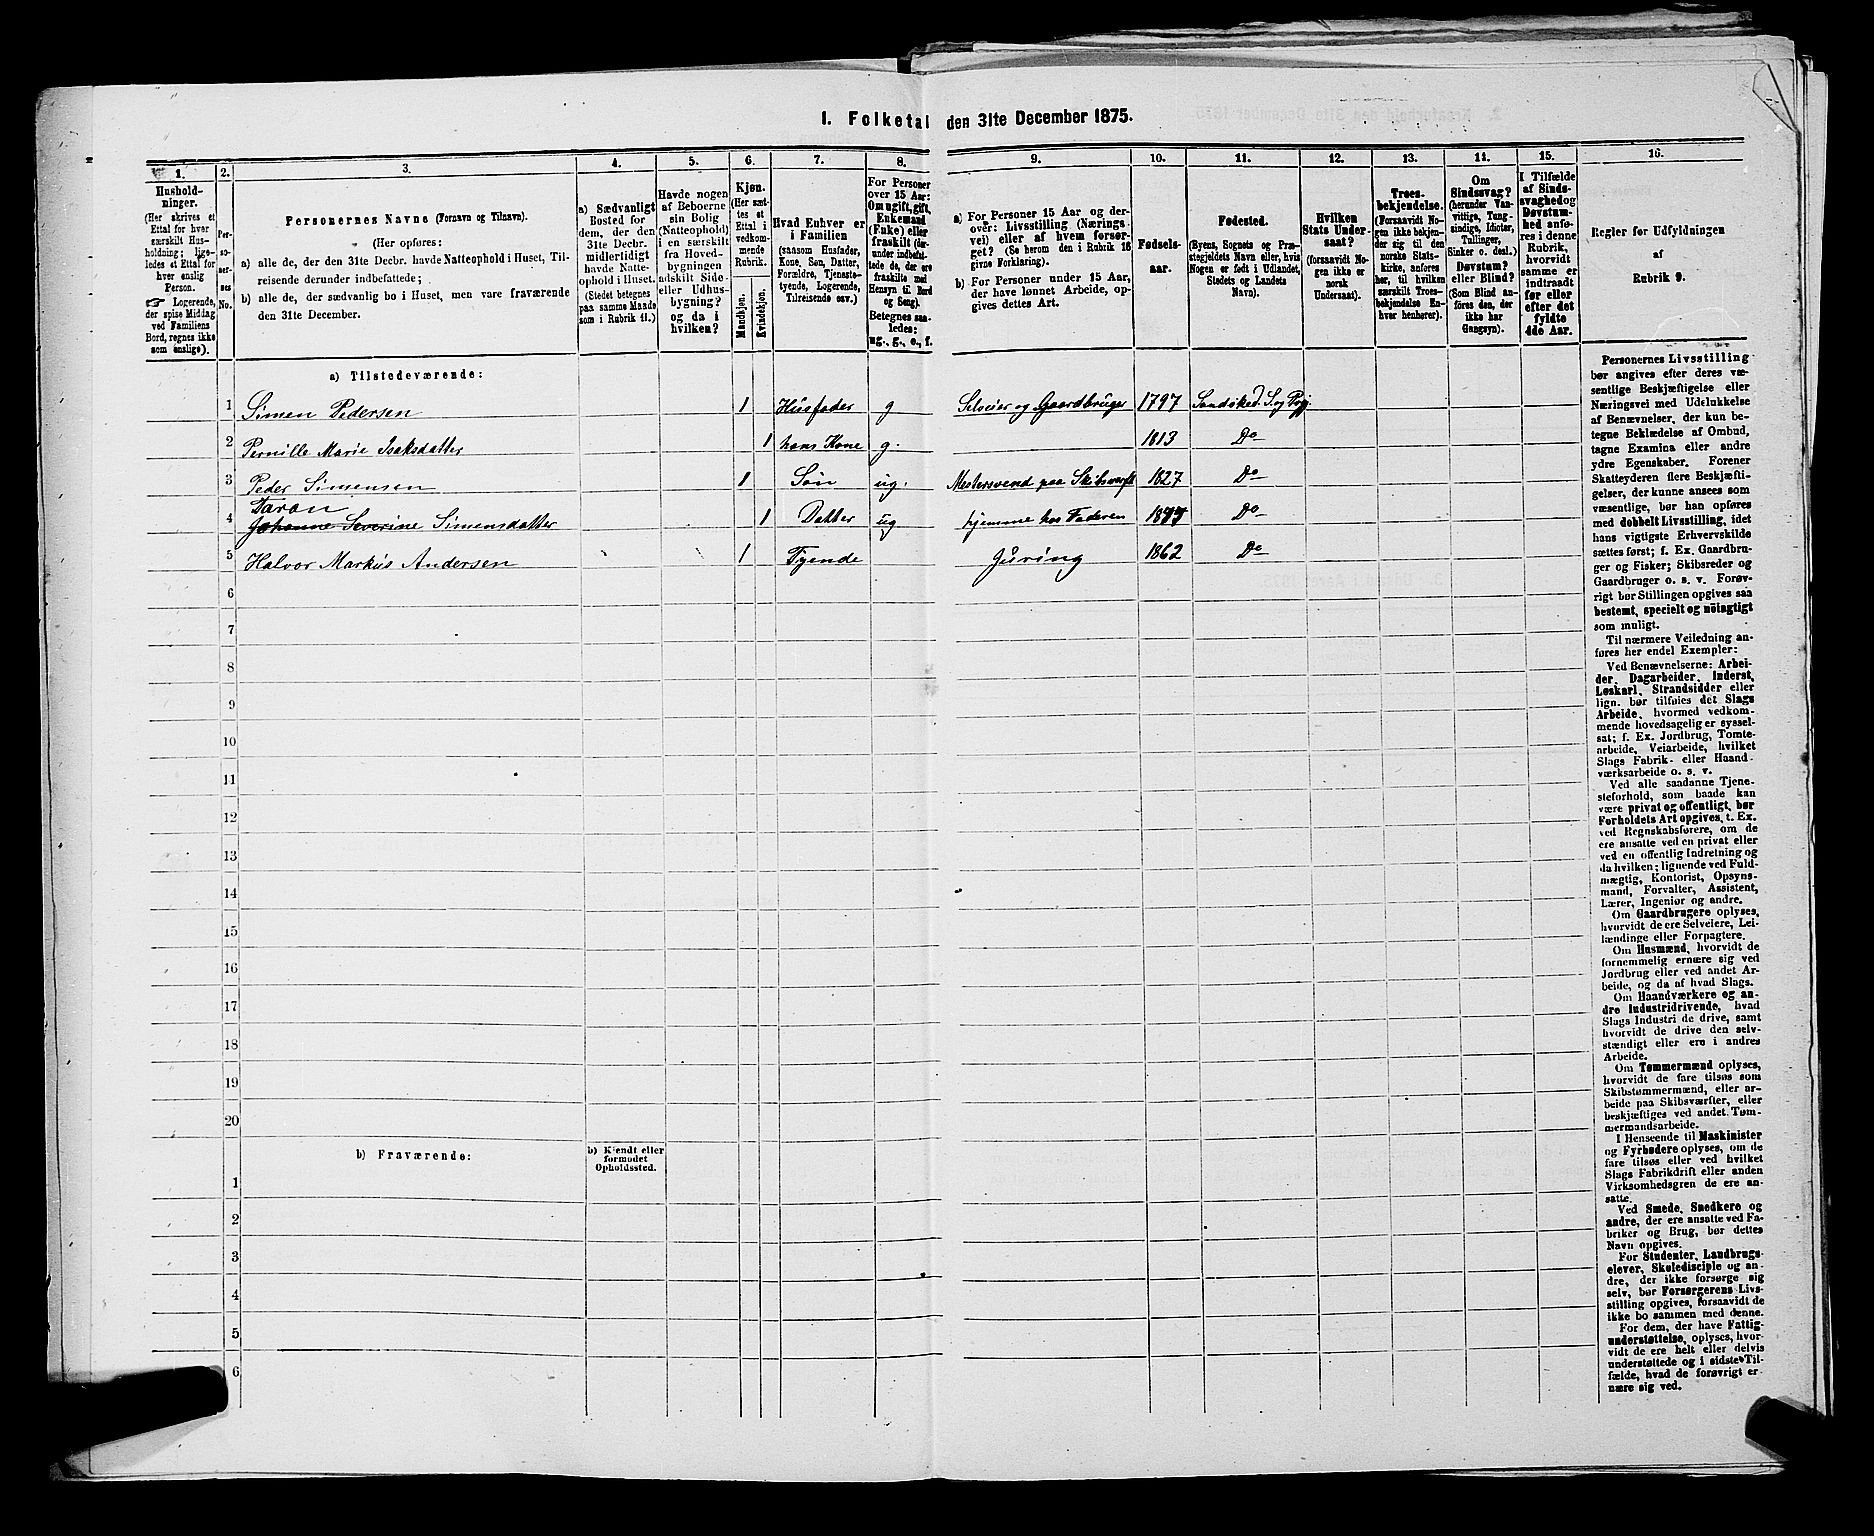 1. Folketal den 31te December 1875.
1. 2. 3. 4. 5. 6. 7. 8. 9. 10. 11. 12. 13. 14. 15. 16.
Hushold-
ninger.
(Her skrives et
Ettal for hver
særskilt Hus-
holdning; lige-
ledes et Ettal for
hver enslig
Person.
☞ Logerende,
der spise Middag
ved Familiens
Bord, regnes ikke
som enslige).
Per-
so-
ner-
nes
No.
Personernes Navne (Fornavn og Tilnavn).
(Her opføres:
a) alle de, der den 31te Decbr. havde Natteophold i Huset, Til-
reisende derunder indbefattede;
b) alle de, der sædvanlig bo i Huset, men vare fraværende
den 31te December.
a) Sædvanligt
Bosted for
dem, der den
31te Decbr.
midlertidigt
havde Natte-
ophold i Huset.
(Stedet betegnes
paa samme Maade
som i Rubrik 11.)
Havde nogen
af Beboerne
sin Bolig
(Natteophold)
i en særskilt
fra Hoved-
bygningen
adskilt Side-
eller Udhus-
bygning?
og da i
hvilken?
Kjøn.
(Her sæt-
tes et
Ettal i
vedkom-
mende
Rubrik.
Mandkjøn.
Kvindekjøn.
Hvad Enhver er
i Familien
(saasom Husfader,
Kone, Søn, Datter,
Forældre, Tjeneste-
tyende, Logerende,
Tilreisende osv.)
For Personer
over 15 Aar:
Om ugift, gift,
Enkemand
(Enke) eller
fraskilt (der-
under indbefat-
tede de, der ere
fraskilte med
Hensyn til Bord
og Seng).
Betegnes saa-
ledes:
ug., g., e., f.
a) For Personer 15 Aar og der-
over: Livsstilling (Nærings-
vei) eller af hvem forsør-
get? (Se herom den i Rubrik 16
givne Forklaring).
b) For Personer under 15 Aar,
der have lønnet Arbeide, op-
gives dettes Art.
Fødsels-
aar.
Fødested.
(Byens, Sognets og Præ-
stegjeldets Navn eller, hvis
Nogen er født i Udlandet,
Stedets og Landets
Navn).
Hvilken
Stats Under-
saat?
(forsaavidt No-
gen ikke er
norsk
Undersaat).
Troes-
bekjendelse.
(Forsaavidt No-
gen ikke bekjen-
der sig til den
norske Stats-
kirke, anføres
her, til hvilken
særskilt Troes-
bekjendelse En-
hver henhører).
Om
Sindssvag?
(herunder Van-
vittige, Tung-
sindige, Idioter,
Tullinger,
Sinker o. desl.)
Døvstum?
eller Blind?
(Som Blind an-
føres den, der
ikke har
Gangsyn).
I Tilfælde
af Sinds-
svaghed og
Døvstum-
hed anfø-
res i denne
Rubrik,
hvorvidt
samme er
indtraadt
før eller
efter det
fyldte
4de Aar.
Regler for Udfyldningen
af
Rubrik 9.
a) Tilstedeværende:
1 Simen Pedersen 1 Husfader g Selveier og Gaardbruger 1797 Sandøked. S. og Pgj.
2 Pernille Marie Isaksdatter 1 hans Kone g. 1813 Do
3 Peder Simensen 1 Søn ug. Mestersvend paa Skibsverft 1827 Do
Taran
4 Johanne Severine Simensdatter 1 Datter ug hjemme hos Faderen Do
5 Halvor Markus Andersen 1 Tyende Gjæring 1862 Do
6
7
8
9
10
11
12
13
14
15
16
17
18
19
20
b) Fraværende:
b) Kjendt eller
formodet
Opholdssted.
1
2
3
4
5
6
Personernes Livsstilling
bør angives efter deres væ-
sentlige Beskjæftigelse eller
Næringsvei med Udelukkelse
af Benævnelser, der kun be-
tegne Beklædelse af Ombud,
tagne Examina eller andre
ydre Egenskaber. Forener
Skatteyderen flere Beskjæfti-
gelser, der kunne ansees som
væsentlige, bør han opføres
med dobbelt Livsstilling, idet
hans vigtigste Erhvervskilde
sættes først; f. Ex. Gaardbru-
ger og Fisker; Skibsreder og
Gaardbruger o. s. v. Forøv-
rigt bør Stillingen opgives saa
bestemt, specielt og nöiagtigt
som muligt.
Til nærmere Veiledning an-
føres her endel Exempler:
Ved Benævnelserne: Arbei-
der, Dagarbeider, Inderst,
Løskarl, Strandsidder eller
lign. bør tilføies det Slags
Arbeide, hvormed vedkom-
mende hovedsagelig er syssel-
sat; f. Ex. Jordbrug, Tomte-
arbeide, Veiarbeide, hvilket
Slags Fabrik- eller Haand-
værksarbeide o. s. v.
Ved alle saadanne Tjene-
steforhold, som baade kan
være privat og offentligt, bør
Forholdets Art opgives, t. Ex.
ved Regnskabsførere, om de
ere ansatte ved en privat eller
ved en offentlig Indretning og
da hvilken; lignende ved Fuld-
mægtig, Kontorist, Opsyns-
mand, Forvalter, Assistent,
Lærer, Ingeniør og andre.
Om Gaardbrugere oplyses,
hvorvidt de ere Selveiere, Lei-
lændinge eller Forpagtere.
Om Husmænd, hvorvidt de
fornemmelig ernære sig ved
Jordbrug eller ved andet Ar-
beide, og da af hvad Slags.
Om Haandværkere og an-
dre Industridrivende, hvad
Slags Industri de drive, samt
hvorvidt de drive den selv-
stændigt eller ere i andres
Arbeide.
Om Tømmermænd oplyses,
hvorvidt de fare tilsøs som
Skibstømmermænd, eller ar-
beide paa Skibsværfter, eller
beskjæftiges ved andet Tøm-
mermandsarbeide.
I Henseende til Maskinister
og Fyrbødere oplyses, om de
fare tilsøs eller ved hvilket
Slags Fabrikdrift eller anden
Virksomhedsgren de ere an-
satte.
Ved Smede, Snedkere og
andre, der ere ansatte ved Fa-
briker og Brug, bør dettes
Navn opgives.
For Studenter, Landbrugs-
elever, Skoledisciple og an-
dre, der ikke forsørge sig
selv, bør Forsørgerens Livs-
stilling opgives, forsaavidt de
ikke bo sammen med denne.
For dem, der have Fattig-
understøttelse, oplyses, hvor-
vidt de ere helt eller delvis
understøttede og i sidste Til-
fælde, hvad de forøvrigt er-
nære sig ved.